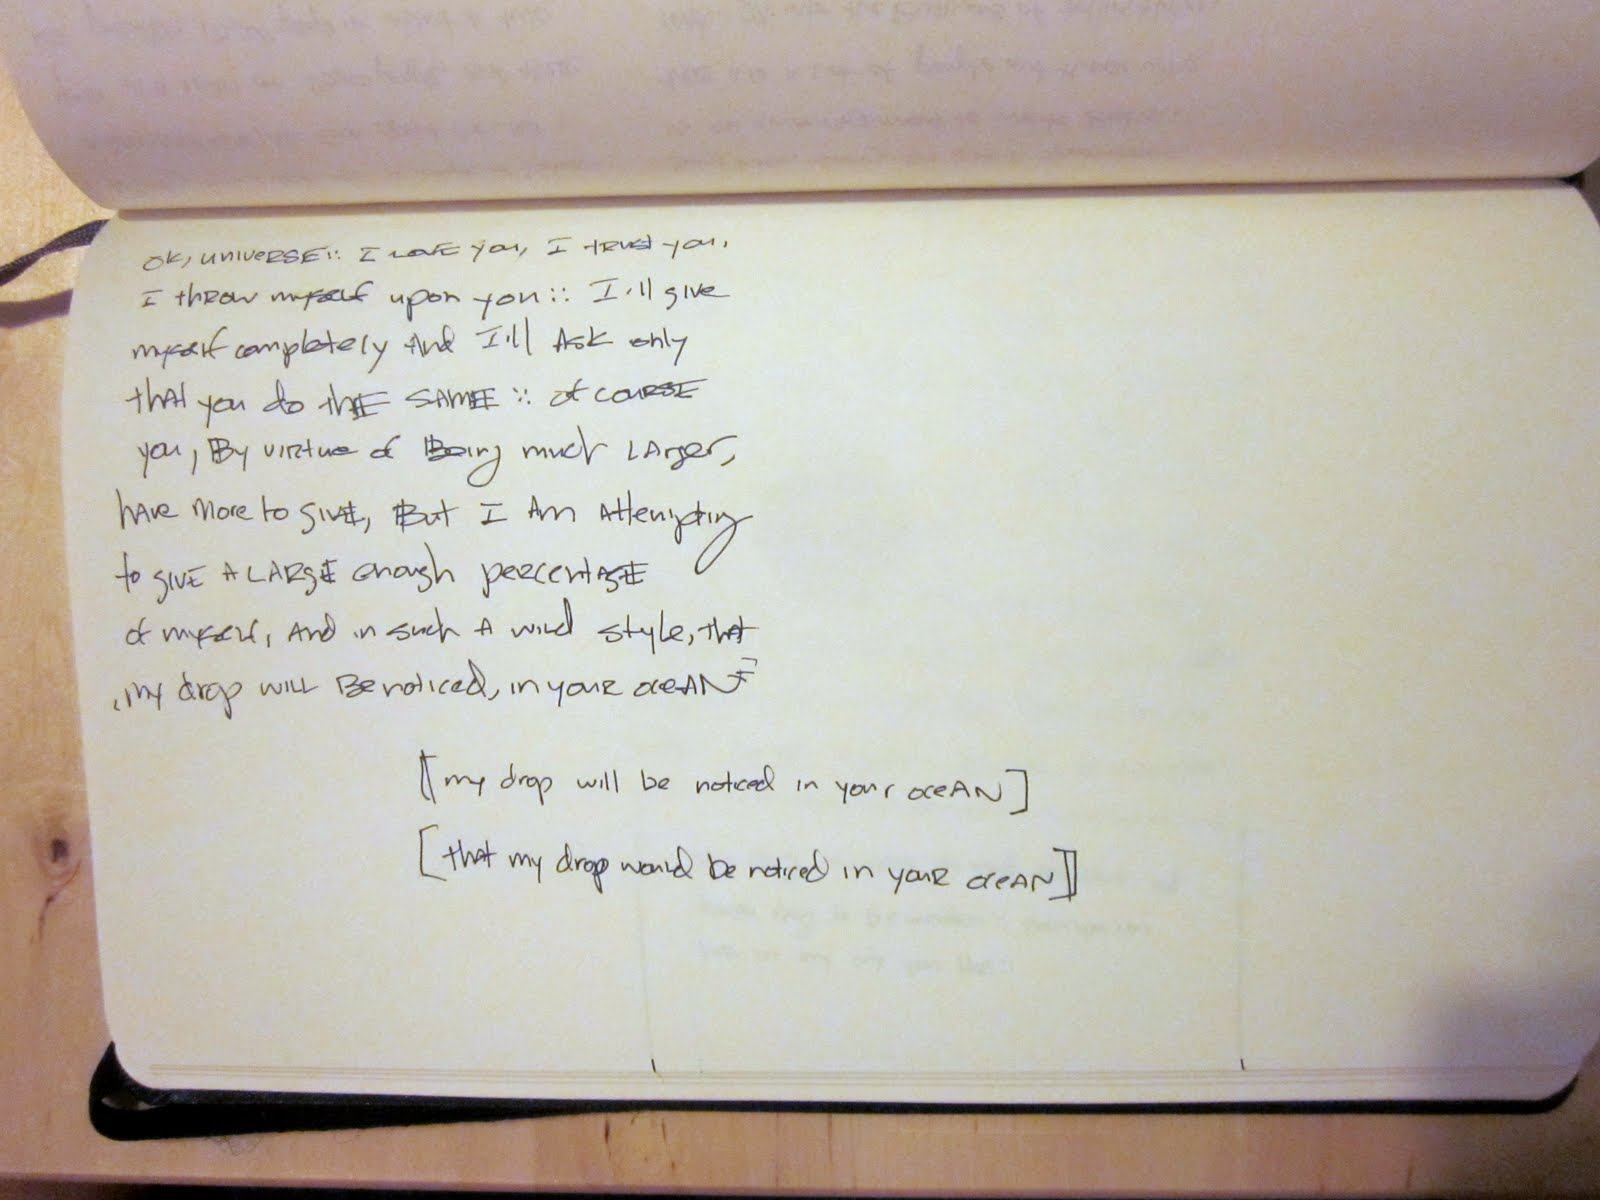 OK, UNIVERSE:: I LOVE YOU, I TRUST YOU,
I throw myself upon you:: I'll give
myself completely And I'll Ask only
thAt you do thE SAME:: of coURSE
you, By virtue of Being much LArger,
hAve More to givE, But I Am Attempting
to givE A LARgE enough percentAgE
of myself, And in such A wild style, thAt
my drop will Be noticed, in youR oceAN
[[my drop will be noticed in your oceAN]
[that my drop would be noticed in youR oceAN]]